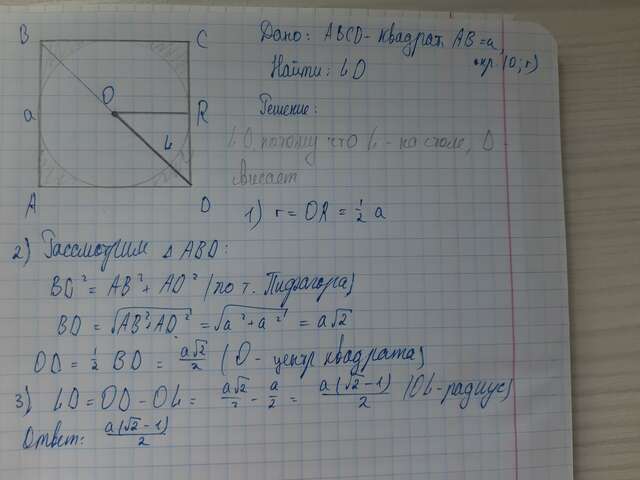 B C
O
a R
L
A D
Дано: ABCD - квадрат, AB = a,
окр. (O; r)
Найти: LD
Решение:
LD, потому что L - на столе, D -
свисает
1) r = OR = 1/2 a
2) Рассмотрим △ ABD:
BD² = AB² + AD² (по т. Пифагора)
BD = √(AB² + AD²) = √(a² + a²) = a√2
OD = 1/2 BD = a√2/2 (O - центр квадрата)
3) LD = OD - OL = a√2/2 - a/2 = a(√2-1)/2 (OL - радиус)
Ответ: a(√2-1)/2